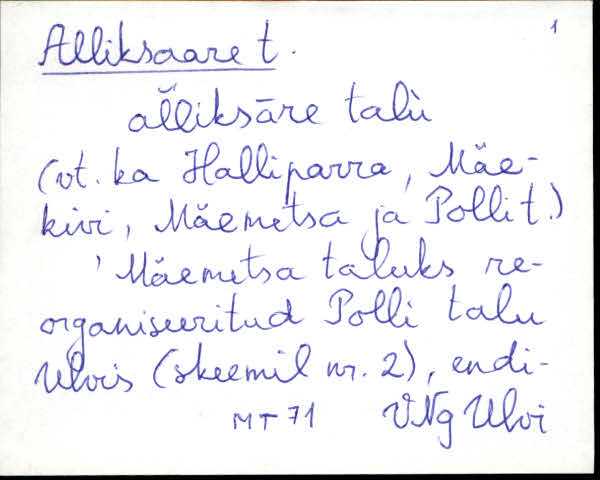 1
Alliksaare t.
al̆liksāre talù
(vt. ka Halliparra, Mäe-
kivi, Mäemetsa ja Polli t.)
' Mäemetsa taluks re-
organiseeritud Polli talu
Ulvis (skeemil nr. 2), endi-
MT 71 VNg Ulvi